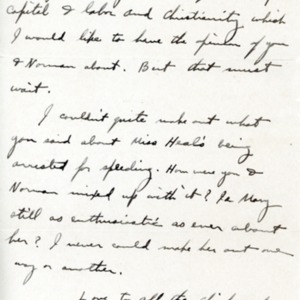 capital & labor and christianity which
I would like to have the opinion of you
& Norman about. But that must
wait.
I couldn't quite make out what
you said about Miss Heal's being
arrested for speeding. How were you &
Norman mixed up with it? Is Mary
still as enthusiastic as ever about
her? I never could make her out one
way or another.
Love to all the